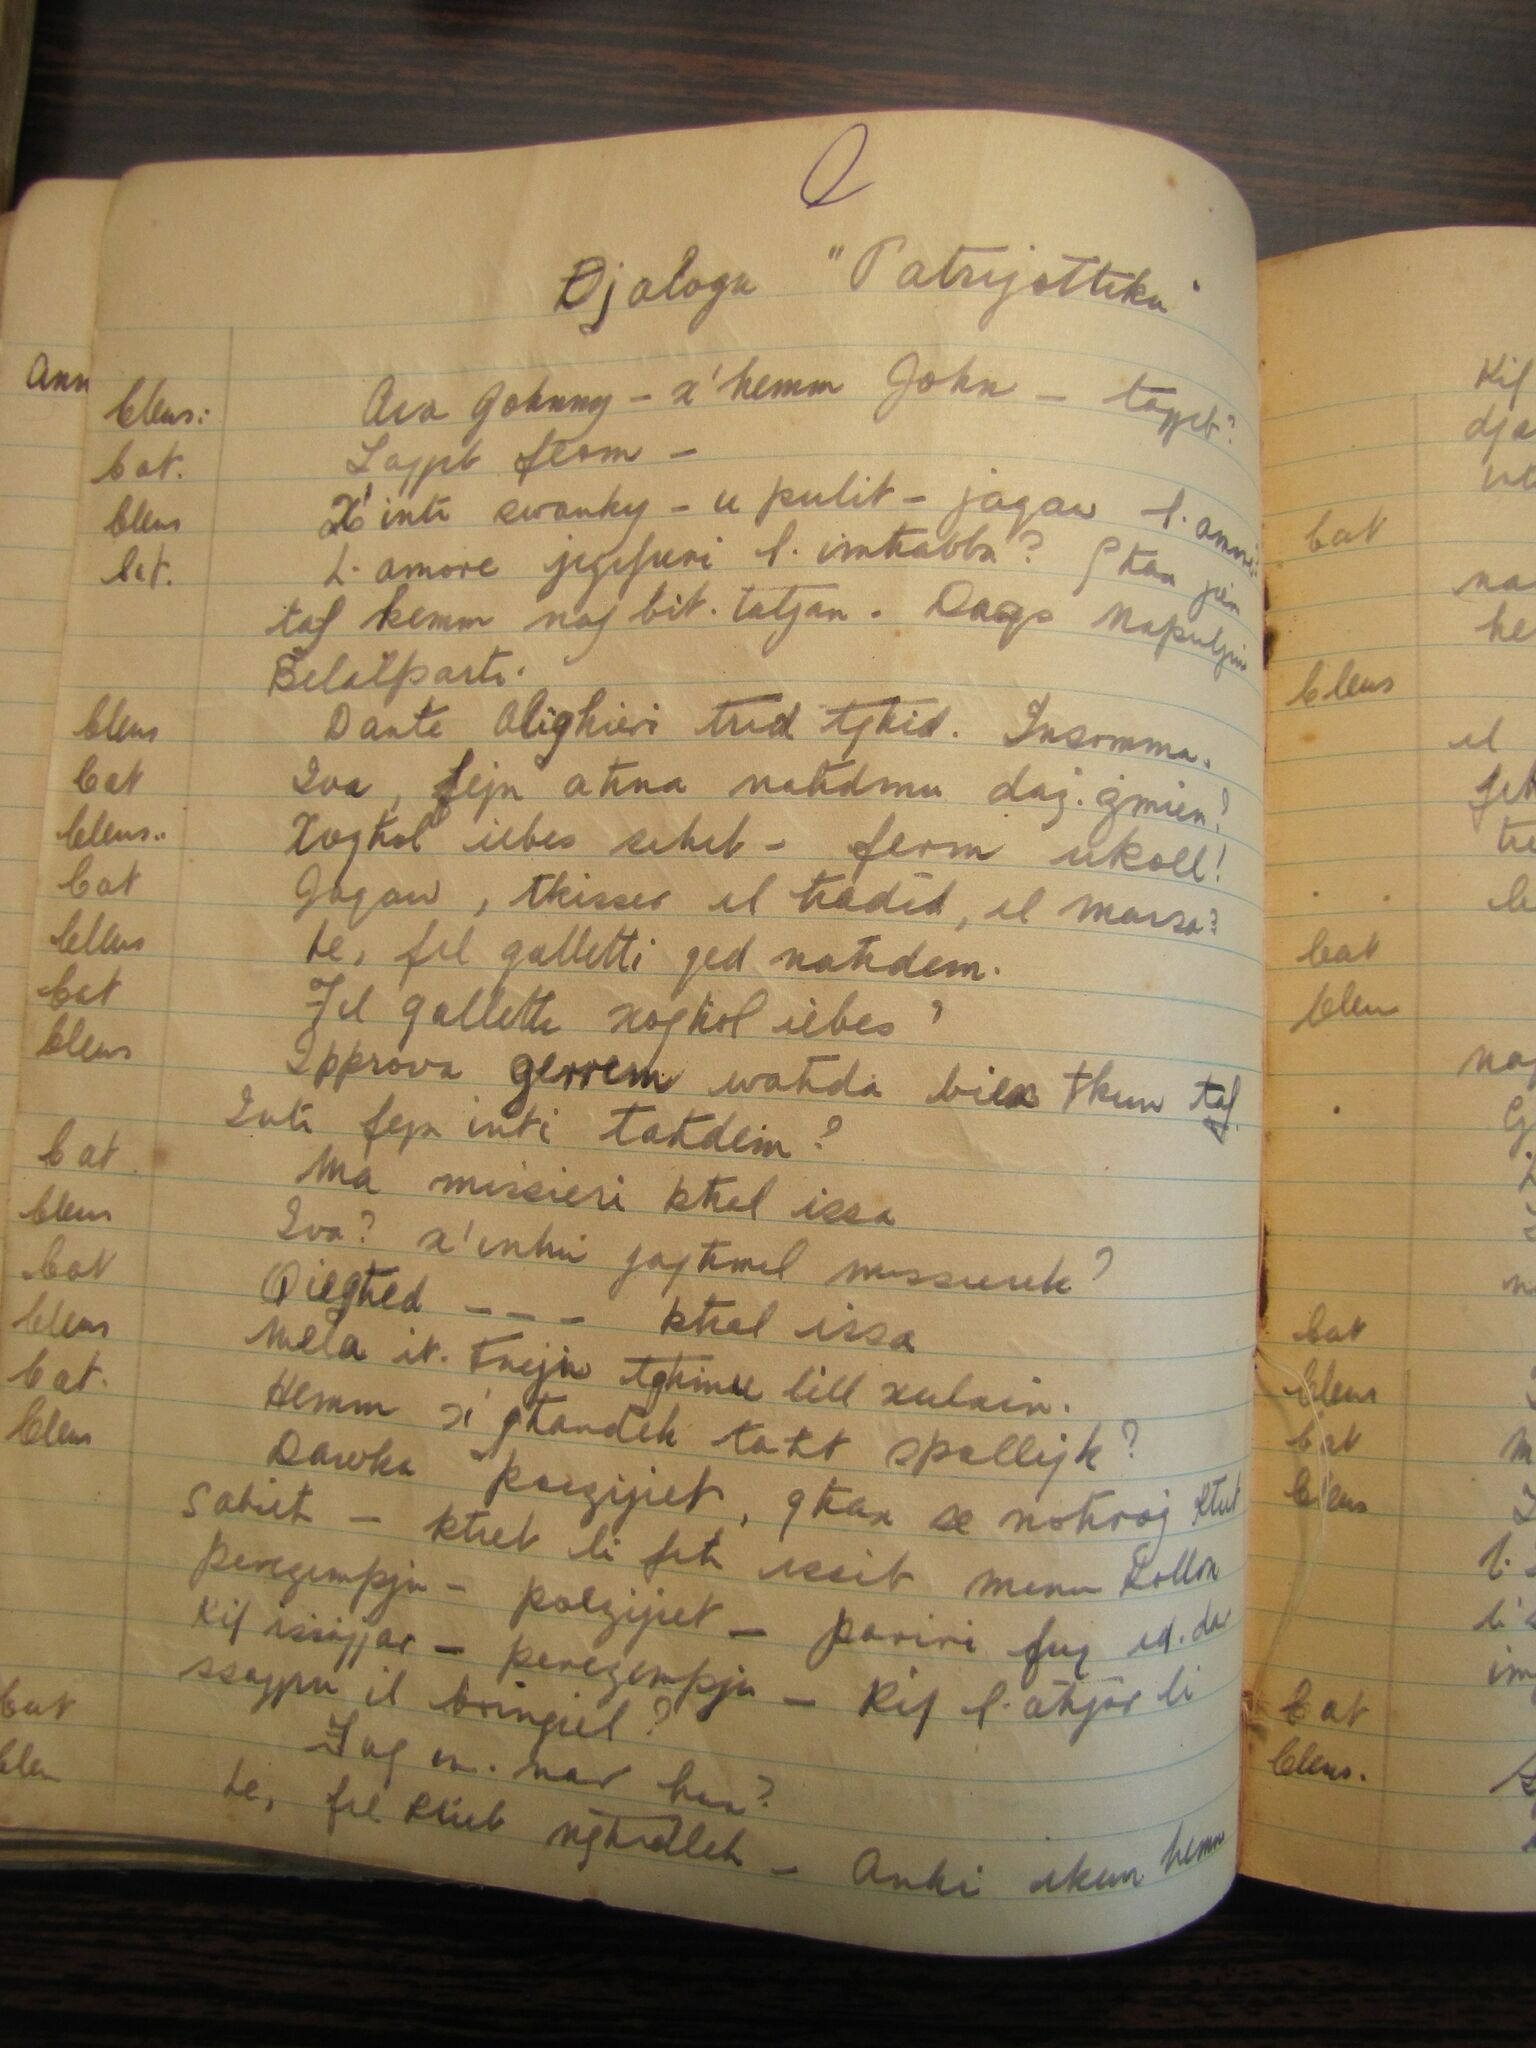 Djaloga "Patrijottiku"
Clem: Ara Johnny - x'hemm John - tajjeb?
Cat. Tajjeb ferm -
Clem X'inti swanky - u pulit - jaqaw l.amore
Cat. L.amore jeġifieri l.imħabba? Għax jien
taf kemm naf bit.taljan. Daqs Napuljun
Belalparti.
Clem Dante Alighieri trid tgħid. Insomma.
Cat Iva, fejn aħna naħdmu daż.żmien?
Clem.. Xogħol iebes seħeb - ferm ukoll!
Cat Jaqaw, tkisser il ħadid, il Marsa?
Clem Le, fil galletti qed naħdem.
Cat Fil galletti xogħol iebes?
Clem Ipprova gerrem waħda biex tkun taf.
Inti fejn inti taħdem?
Cat. Ma missieri ktħal issa
Clem Iva? x'inhu jagħmel missierek?
Cat Qiegħed --- ktħal issa
Clem Mela it.tnejn tgħinu lill xulxin.
Cat. Hemm x'għandek taħt spallejk?
Clem Dawka poeżijiet, għax se noħroġ ktieb
sabieħ - ktieb li fih issib minn kollox
pereżempju - poeżijiet - pariri fuq id.dar
Kif issajjar - pereżempju - Kif l.aħjar li
ssajjru il brinġiel?
Cat Fuq in.nar hux?
Clem Le, fil ktieb ngħidlek - Anki ikun hemm
Ann
Kif
Cat
Clem
il
Cat
Clem
Cat
Clem
Cat
Clem
Cat
Clem.